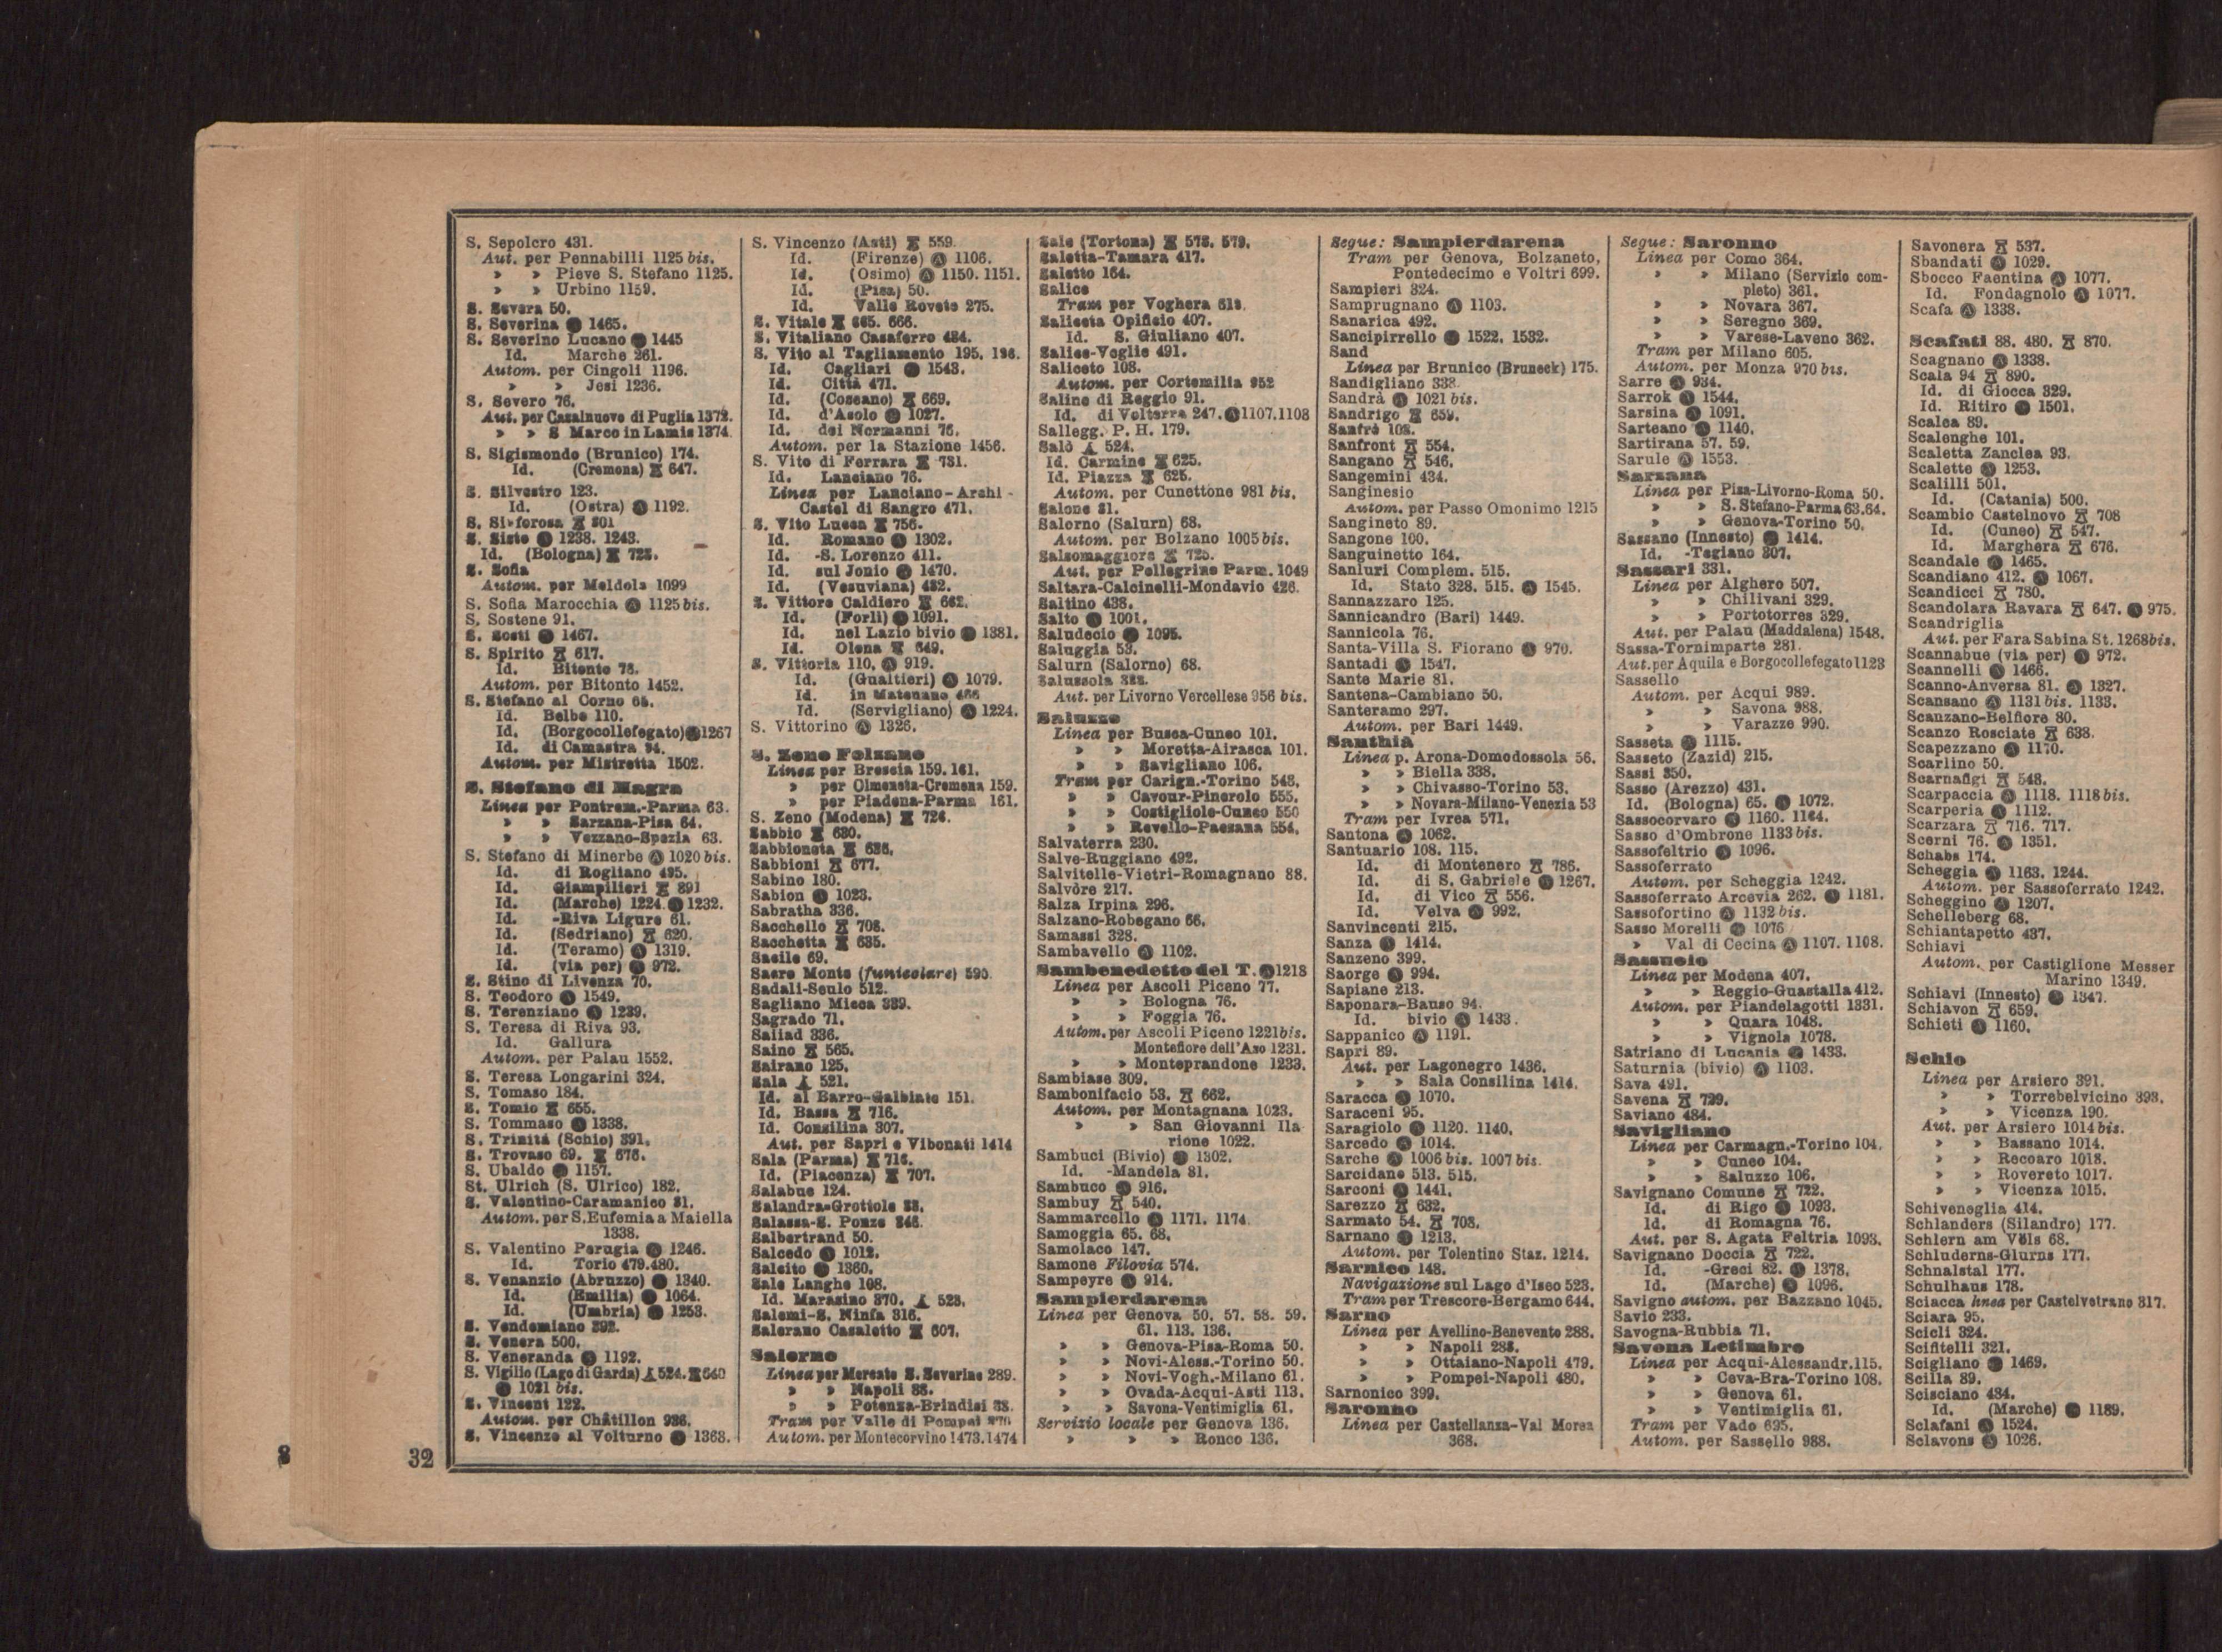 S. Sepolcro 431.
Aut. per Pennabilli 1125 bis.
» » Pieve S. Stefano 1125.
» » Urbino 1159.
S. Severa 50.
S. Severina Ⓐ 1465.
S. Severino Lucano Ⓐ 1445
Id. Marche 261.
Autom. per Cingoli 1196.
» » Jesi 1236.
S. Severo 76.
Aut. per Casalnuovo di Puglia 1372.
» » S Marco in Lamis 1374.
S. Sigismondo (Brunico) 174.
Id. (Cremona) 647.
S. Silvestro 123.
Id. (Ostra) Ⓐ 1192.
S. Sinforosa 801
S. Sisto Ⓐ 1238. 1243.
Id. (Bologna)
S. Sofia
Autom. per Meldola 1099
S. Sofia Marocchia Ⓐ 1125 bis.
S. Sostene 91.
S. Sosti Ⓐ 1467.
S. Spirito 617.
Id. Bitonto 76.
Autom. per Bitonto 1452.
S. Stefano al Corno
Id. Belbo 110.
Id. (Borgocollefegato) Ⓐ 1267
Id. di Camastra 94.
Autom. per Mistretta 1502.
S. Stefano di Magra
Linea per Pontrem.-Parma 63.
» » Sarzana-Pisa 64.
» » Vezzano-Spezia 63.
S. Stefano di Minerbe Ⓐ 1020 bis.
Id. di Rogliano 495.
Id. Giampilieri 891
Id. (Marche) 1224. Ⓐ 1232.
Id. -Riva Ligure 61.
Id. (Sedriano) 620.
Id. (Teramo) Ⓐ 1319.
Id. (via per) Ⓐ 972.
S. Stino di Livenza 70.
S. Teodoro Ⓐ 1549.
S. Terenziano Ⓐ 1239.
S. Teresa di Riva 93.
Id. Gallura
Autom. per Palau 1552.
S. Teresa Longarini 324.
S. Tomaso 184.
S. Tomio 655.
S. Tommaso Ⓐ 1338.
S. Trinitá (Schio) 391.
S. Trovaso 69. 676.
S. Ubaldo Ⓐ 1157.
St. Ulrich (S. Ulrico) 182.
S. Valentino-Caramanico 81.
Autom. per S. Eufemia a Maiella
1338.
S. Valentino Perugia Ⓐ 1246.
Id. Torio 479.480.
S. Venanzio (Abruzzo) Ⓐ 1340.
Id. (Emilia) Ⓐ 1064.
Id. (Umbria) Ⓐ 1253.
S. Vendemiano 392.
S. Venera 500.
S. Veneranda Ⓐ 1192.
S. Vigilio (Lago di Garda) 524. 640
Ⓐ 1021 bis.
S. Vincent 122.
Autom. per Châtillon 936.
S. Vincenzo al Volturno Ⓐ 1368.
S. Vincenzo (Asti) 559.
Id. (Firenze) Ⓐ 1106.
Id. (Osimo) Ⓐ 1150. 1151.
Id. (Pisa) 50.
Id. Valle Roveto 275.
S. Vitale 665. 666.
S. Vitaliano Casaferro 484.
S. Vito al Tagliamento 195. 196.
Id. Cagliari Ⓐ 1543.
Id. Città 471.
Id. (Coseano) 669.
Id. d'Asolo Ⓐ 1027.
Id. dei Normanni 76.
Autom. per la Stazione 1456.
S. Vito di Ferrara 731.
Id. Lanciano 76.
Linea per Lanciano-Archi-
Castel di Sangro 471.
S. Vito Lucca 756.
Id. Romano Ⓐ 1302.
Id. -S. Lorenzo 411.
Id. sul Jonio Ⓐ 1470.
Id. (Vesuviana) 482.
S. Vittore Caldiero 662.
Id. (Forli) Ⓐ 1091.
Id. nel Lazio bivio Ⓐ 1381.
Id. Olona 649.
S. Vittoria 110. Ⓐ 919.
Id. (Gualtieri) Ⓐ 1079.
Id. in Matenano 466
Id. (Servigliano) Ⓐ 1224.
S. Vittorino Ⓐ 1326.
S. Zeno Folzano
Linea per Brescia 159. 161.
» per Olmeneta-Cremona 159.
» per Piadena-Parma 161.
S. Zeno (Modena) 726.
Sabbio 630.
Sabbioneta 636.
Sabbioni 677.
Sabino 180.
Sabion Ⓐ 1023.
Sabratha 336.
Sacchello 708.
Sacchetta 635.
Sacile 69.
Sacro Monte (funicolare) 590.
Sadali-Seulo 512.
Sagliano Micca 339.
Sagrado 71.
Saiiad 336.
Saino 565.
Sairano 125.
Sala 521.
Id. al Barro-Galbiate 151.
Id. Bassa 716.
Id. Consilina 307.
Aut. per Sapri e Vibonati 1414
Sala (Parma) 716.
Id. (Piacenza) 707.
Salabue 124.
Salandra-Grottole 88.
Salassa-S. Ponzo 346.
Salbertrand 50.
Salcedo Ⓐ 1012.
Salcito Ⓐ 1360.
Sale Langhe 108.
Id. Marasino 370. 523.
Salemi-S. Ninfa 316.
Salerano Casaletto 607.
Salerno
Linea per Mercato S. Severino 289.
» » Napoli 88.
» » Potenza-Brindisi 88.
Tram per Valle di Pompei 870
Autom. per Montecorvino 1473.1474
Sale (Tortona) 578. 579.
Saletta-Tamara 417.
Saletto 164.
Salice
Tram per Voghera 612.
Saliceta Opificio 407.
Id. S. Giuliano 407.
Salice-Veglie 491.
Saliceto 108.
Autom. per Cortemilia 952
Saline di Reggio 91.
Id. di Volterra 247. Ⓐ 1107.1108
Sallegg. P. H. 179.
Salò 524.
Id. Carmine 625.
Id. Piazza 625.
Autom. per Cunettone 981 bis.
Salone 81.
Salorno (Salurn) 68.
Autom. per Bolzano 1005 bis.
Salsomaggiore 725.
Aut. per Pellegrino Parm. 1049
Saltara-Calcinelli-Mondavio 426.
Saltino 438.
Salto Ⓐ 1001.
Saludecio Ⓐ 1095.
Saluggia 53.
Salurn (Salorno) 68.
Salussola 338.
Aut. per Livorno Vercellese 956 bis.
Saluzzo
Linea per Busca-Cuneo 101.
» » Moretta-Airasca 101.
» » Savigliano 106.
Tram per Carign.-Torino 548.
» » Cavour-Pinerolo 555.
» » Costigliole-Cuneo 550
» » Revello-Paesana 554.
Salvaterra 230.
Salve-Ruggiano 492.
Salvitelle-Vietri-Romagnano 88.
Salvòre 217.
Salza Irpina 296.
Salzano-Robegano 66.
Samassi 328.
Sambavello Ⓐ 1102.
Sambenedetto del T. Ⓐ 1218
Linea per Ascoli Piceno 77.
» » Bologna 76.
» » Foggia 76.
Autom. per Ascoli Piceno 1221 bis.
Montefiore dell'Aso 1231.
» » Monteprandone 1233.
Sambiase 309.
Sambonifacio 53. 662.
Autom. per Montagnana 1023.
» » San Giovanni Ila
rione 1022.
Sambuci (Bivio) Ⓐ 1302.
Id. -Mandela 81.
Sambuco Ⓐ 916.
Sambuy 540.
Sammarcello Ⓐ 1171. 1174.
Samoggia 65. 68.
Samolaco 147.
Samone Filovia 574.
Sampeyre Ⓐ 914.
Sampierdarena
Linea per Genova 50. 57. 58. 59.
61. 113. 136.
» » Genova-Pisa-Roma 50.
» » Novi-Aless.-Torino 50.
» » Novi-Vogh.-Milano 61.
» » Ovada-Acqui-Asti 113.
» » Savona-Ventimiglia 61.
Servizio locale per Genova 136.
» » » Ronco 136.
Segue: Sampierdarena
Tram per Genova, Bolzaneto,
Pontedecimo e Voltri 699.
Sampieri 324.
Samprugnano Ⓐ 1103.
Sanarica 492.
Sancipirrello Ⓐ 1522. 1532.
Sand
Linea per Brunico (Bruneck) 175.
Sandigliano 338.
Sandrà Ⓐ 1021 bis.
Sandrigo 659.
Sanfrè 108.
Sanfront 554.
Sangano 546.
Sangemini 434.
Sanginesio
Autom. per Passo Omonimo 1215
Sangineto 89.
Sangone 100.
Sanguinetto 164.
Sanluri Complem. 515.
Id. Stato 328. 515. Ⓐ 1545.
Sannazzaro 125.
Sannicandro (Bari) 1449.
Sannicola 76.
Santa-Villa S. Fiorano Ⓐ 970.
Santadi Ⓐ 1547.
Sante Marie 81.
Santena-Cambiano 50.
Santeramo 297.
Autom. per Bari 1449.
Santhia
Linea p. Arona-Domodossola 56.
» » Biella 338.
» » Chivasso-Torino 53.
» » Novara-Milano-Venezia 53
Tram per Ivrea 571.
Santona Ⓐ 1062.
Santuario 108. 115.
Id. di Montenero 786.
Id. di S. Gabriele Ⓐ 1267.
Id. di Vico 556.
Id. Velva Ⓐ 992.
Sanvincenti 215.
Sanza Ⓐ 1414.
Sanzeno 399.
Saorge Ⓐ 994.
Sapiane 213.
Saponara-Bauso 94.
Id. bivio Ⓐ 1433.
Sappanico Ⓐ 1191.
Sapri 89.
Aut. per Lagonegro 1436.
» » Sala Consilina 1414.
Saracca Ⓐ 1070.
Saraceni 95.
Saragiolo Ⓐ 1120. 1140.
Sarcedo Ⓐ 1014.
Sarche Ⓐ 1006 bis. 1007 bis.
Sarcidano 513. 515.
Sarconi Ⓐ 1441.
Sarezzo 632.
Sarmato 54. 708.
Sarnano Ⓐ 1213.
Autom. per Tolentino Staz. 1214.
Sarnico 148.
Navigazione sul Lago d'Iseo 523.
Tram per Trescore-Bergamo 644.
Sarno
Linea per Avellino-Benevento 288.
» » Napoli 288.
» » Ottaiano-Napoli 479.
» » Pompei-Napoli 480.
Sarnonico 399.
Saronno
Linea per Castellanza-Val Morea
368.
Segue: Saronno
Linea per Como 364.
» » Milano (Servizio com-
pleto) 361.
» » Novara 367.
» » Seregno 369.
» » Varese-Laveno 362.
Tram per Milano 605.
Autom. per Monza 970 bis.
Sarre Ⓐ 934.
Sarrok Ⓐ 1544.
Sarsina Ⓐ 1091.
Sarteano Ⓐ 1140.
Sartirana 57. 59.
Sarule Ⓐ 1553.
Sarzana
Linea per Pisa-Livorno-Roma 50.
» » S. Stefano-Parma 63.64.
» » Genova-Torino 50.
Sassano (Innesto) Ⓐ 1414.
Id. -Tegiano 307.
Sassari 331.
Linea per Alghero 507.
» » Chilivani 329.
» » Portotorres 329.
Aut. per Palau (Maddalena) 1548.
Sassa-Tornimparte 281.
Aut. per Aquila e Borgocollefegato 1123
Sassello
Autom. per Acqui 989.
» » Savona 988.
» » Varazze 990.
Sasseta Ⓐ 1115.
Sasseto (Zazid) 215.
Sassi 350.
Sasso (Arezzo) 431.
Id. (Bologna) 65. Ⓐ 1072.
Sassocorvaro Ⓐ 1160. 1164.
Sasso d'Ombrone 1133 bis.
Sassofeltrio Ⓐ 1096.
Sassoferrato
Autom. per Scheggia 1242.
Sassoferrato Arcevia 262. Ⓐ 1181.
Sassofortino Ⓐ 1132 bis.
Sasso Morelli Ⓐ 1076
» Val di Cecina Ⓐ 1107. 1108.
Sassuolo
Linea per Modena 407.
» » Reggio-Guastalla 412.
Autom. per Piandelagotti 1331.
» » Quara 1048.
» » Vignola 1078.
Satriano di Lucania Ⓐ 1433.
Saturnia (bivio) Ⓐ 1103.
Sava 491.
Savena 729.
Saviano 484.
Savigliano
Linea per Carmagn.-Torino 104.
» » Cuneo 104.
» » Saluzzo 106.
Savignano Comune 722.
Id. di Rigo Ⓐ 1093.
Id. di Romagna 76.
Aut. per S. Agata Feltria 1093.
Savignano Doccia 722.
Id. -Greci 82. Ⓐ 1378.
Id. (Marche) Ⓐ 1096.
Savigno autom. per Bazzano 1045.
Savio 233.
Savogna-Rubbia 71.
Savona Letimbro
Linea per Acqui-Alessandr.115.
» » Ceva-Bra-Torino 108.
» » Genova 61.
» » Ventimiglia 61.
Tram per Vado 695.
Autom. per Sassello 988.
Savonera 537.
Sbandati Ⓐ 1029.
Sbocco Faentina Ⓐ 1077.
Id. Fondagnolo Ⓐ 1077.
Scafa Ⓐ 1338.
Scafati 88. 480. 870.
Scagnano Ⓐ 1338.
Scala 94 890.
Id. di Giocca 329.
Id. Ritiro Ⓐ 1501.
Scalea 89.
Scalenghe 101.
Scaletta Zanclea 93.
Scalette Ⓐ 1253.
Scalilli 501.
Id. (Catania) 500.
Scambio Castelnovo 708
Id. (Cuneo) 547.
Id. Marghera 676.
Scandale Ⓐ 1465.
Scandiano 412. Ⓐ 1067.
Scandicci 780.
Scandolara Ravara 647. Ⓐ 975.
Scandriglia
Aut. per Fara Sabina St. 1268bis.
Scannabue (via per) Ⓐ 972.
Scannelli Ⓐ 1466.
Scanno-Anversa 81. Ⓐ 1327.
Scansano Ⓐ 1131 bis. 1133.
Scanzano-Belfiore 80.
Scanzo Rosciate 638.
Scapezzano Ⓐ 1170.
Scarlino 50.
Scarnafigi 548.
Scarpaccia Ⓐ 1118. 1118 bis.
Scarperia Ⓐ 1112.
Scarzara 716. 717.
Scerni 76. Ⓐ 1351.
Schabs 174.
Scheggia Ⓐ 1163. 1244.
Autom. per Sassoferrato 1242.
Scheggino Ⓐ 1207.
Schelleberg 68.
Schiantapetto 437.
Schiavi
Autom. per Castiglione Messer
Marino 1349.
Schiavi (Innesto) Ⓐ 1347.
Schiavon 659.
Schieti Ⓐ 1160.
Schio
Linea per Arsiero 391.
» » Torrebelvicino 393.
» » Vicenza 190.
Aut. per Arsiero 1014 bis.
» » Bassano 1014.
» » Recoaro 1018.
» » Rovereto 1017.
» » Vicenza 1015.
Schiveneglia 414.
Schlanders (Silandro) 177.
Schlern am Völs 68.
Schluderns-Glurns 177.
Schnalstal 177.
Schulhaus 178.
Sciacca linea per Castelvetrano 317.
Sciara 95.
Scicli 324.
Scifitelli 321.
Scigliano Ⓐ 1469.
Scilla 89.
Scisciano 484.
Id. (Marche) Ⓐ 1189.
Sclafani Ⓐ 1524.
Sclavons Ⓐ 1026.
32